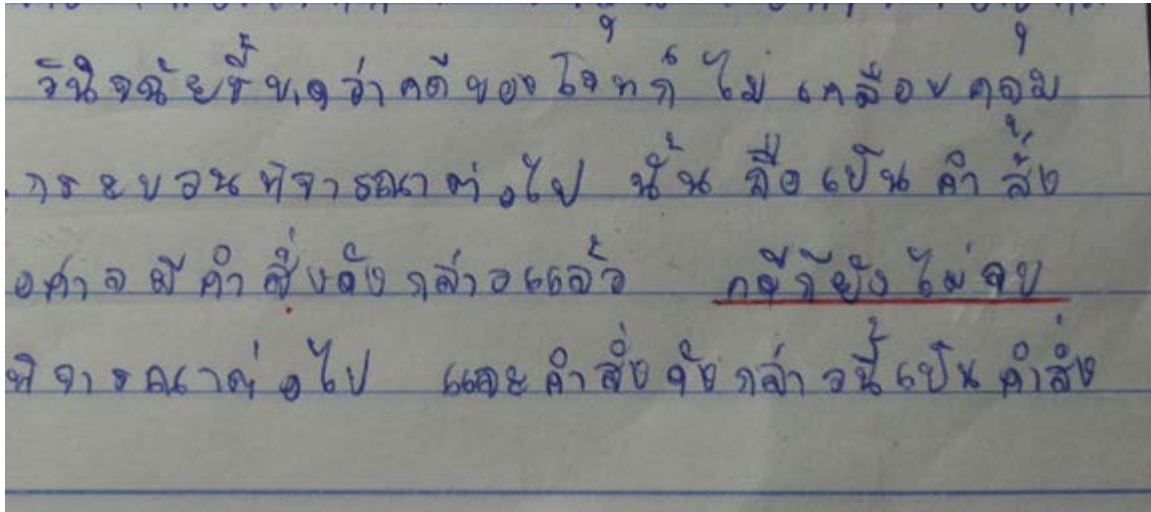 วินิจฉัยชี้ขาดว่าคดีของโจทก์ ไม่เคลือบคลุม
กระบวนพิจารณาต่อไป นั้น ถือเป็นคำสั่ง
อศาลมีคำสั่งดังกล่าวแล้ว คดีก็ยังไม่จบ
พิจารณาต่อไป และคำสั่งดังกล่าวนี้เป็นคำสั่ง